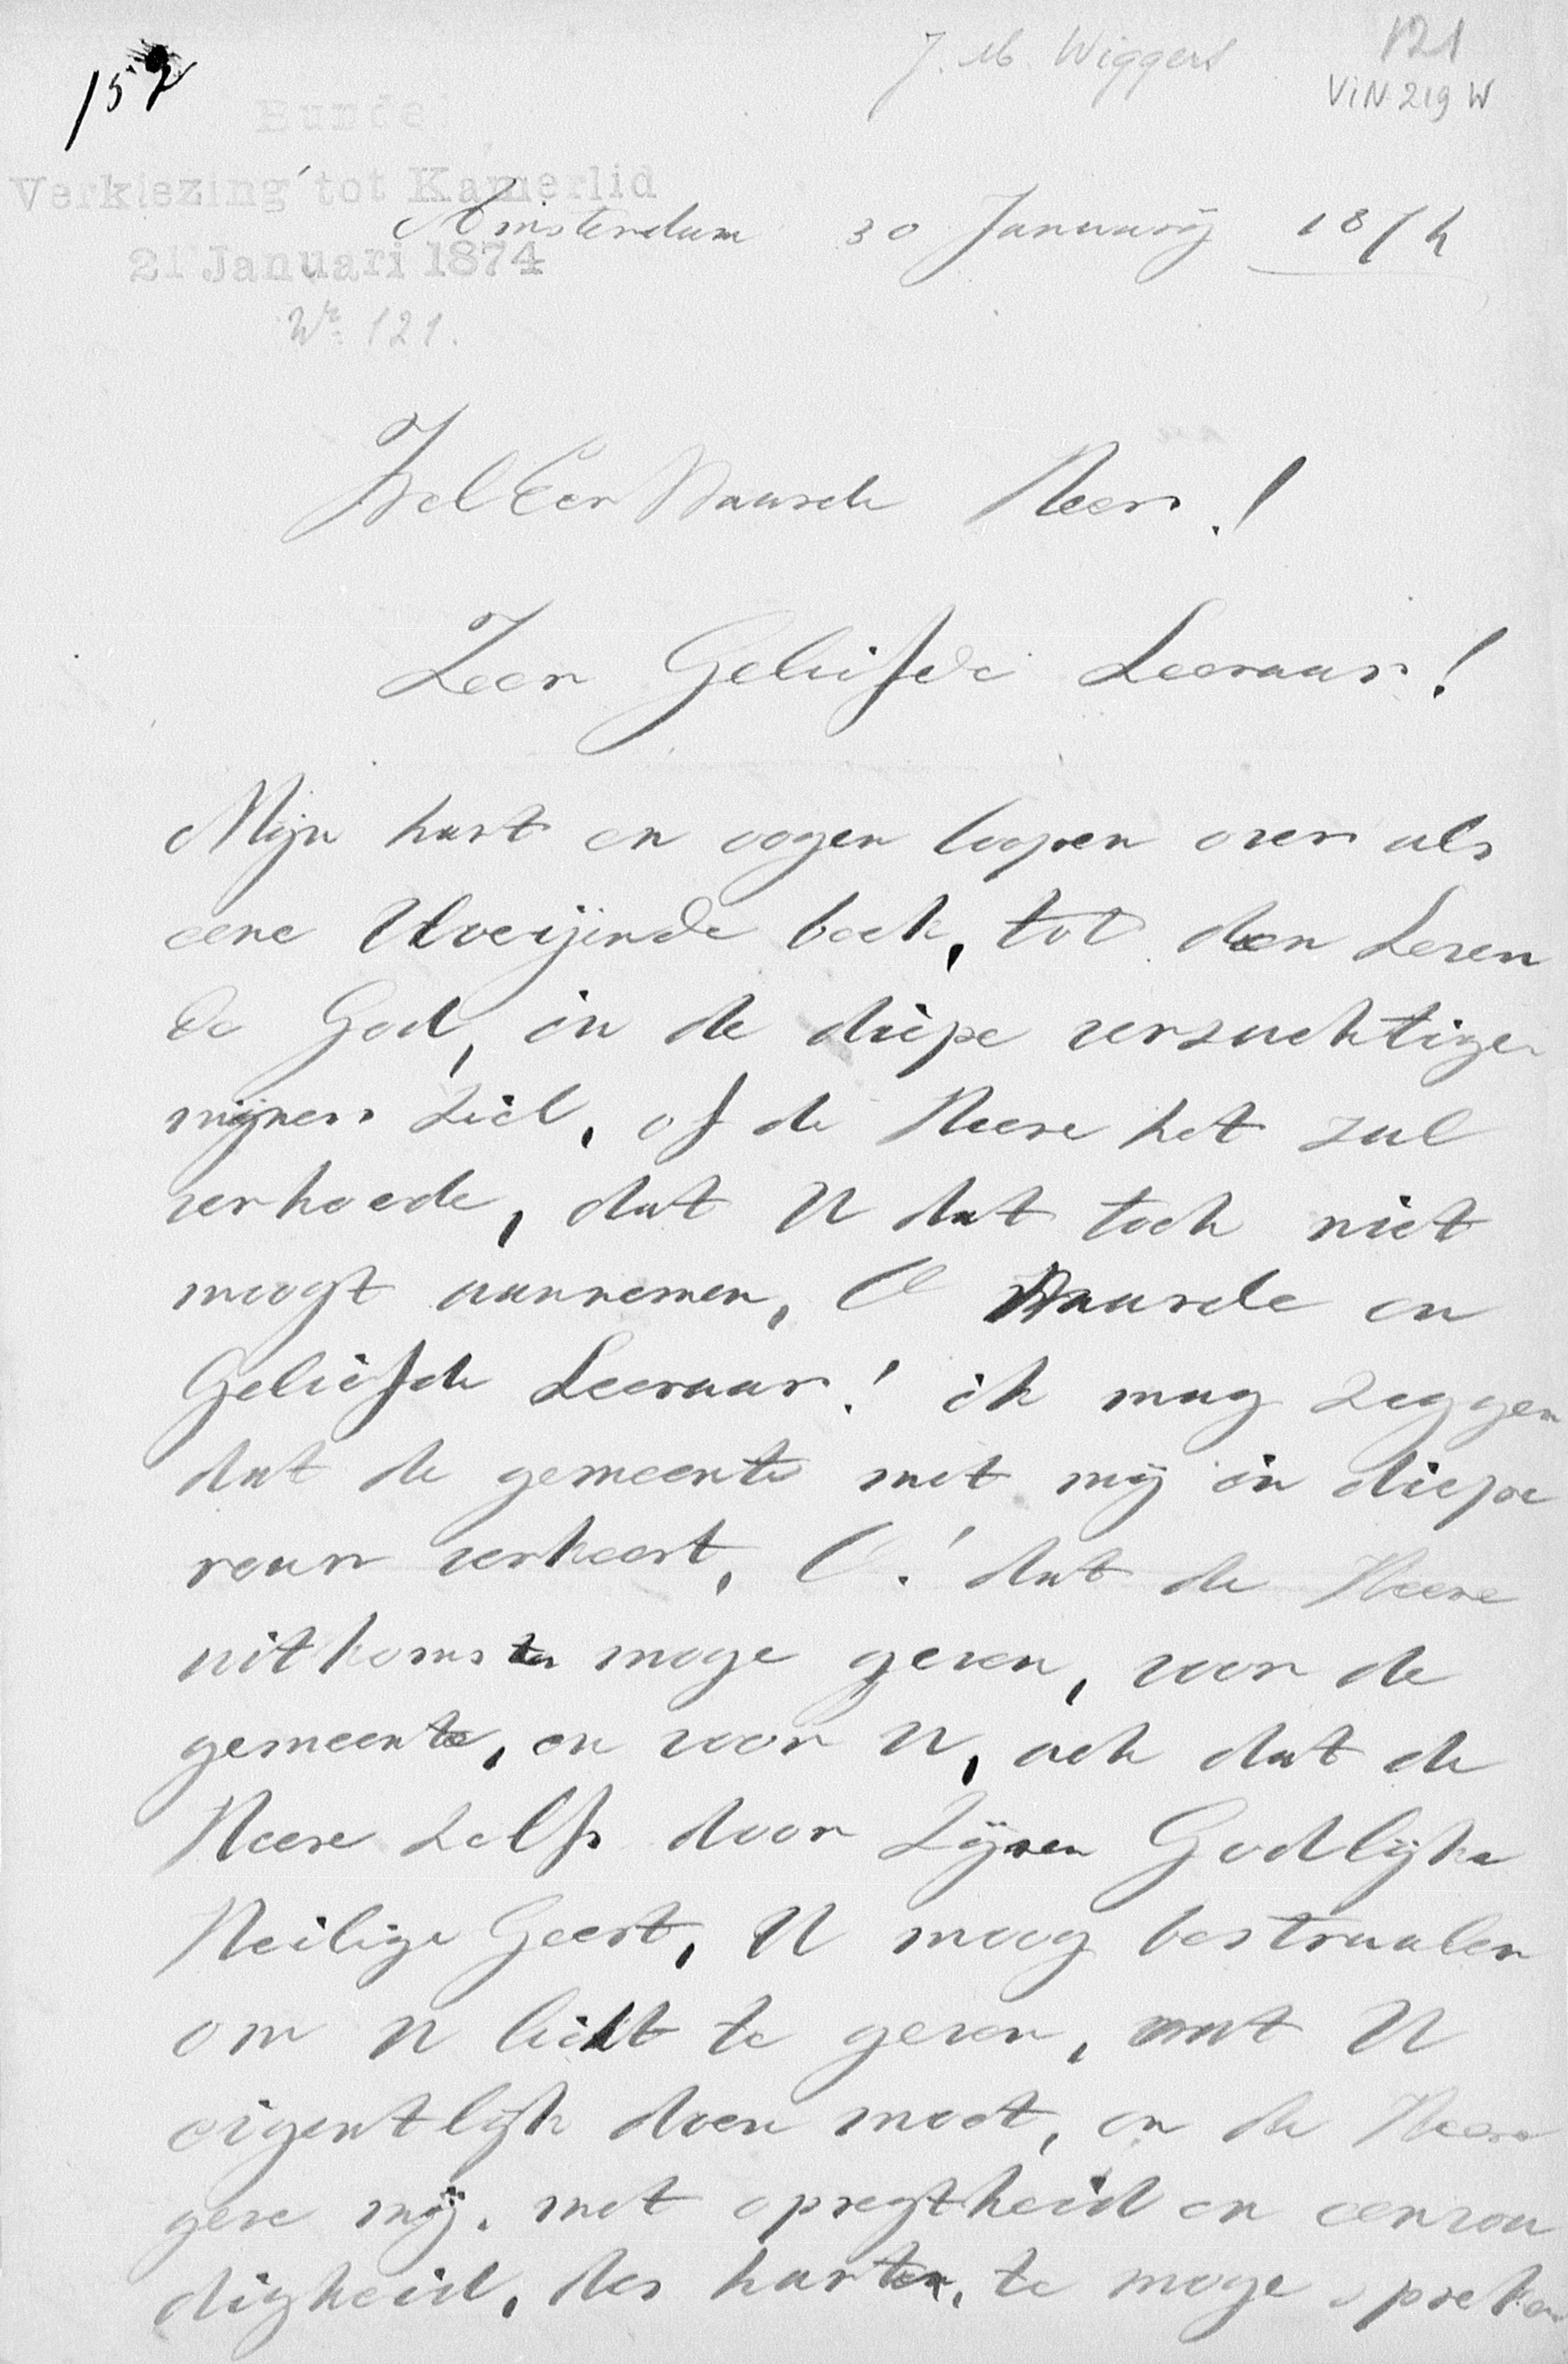 152
J. M. Wiggers
121
ViN 219 W
Bunde
Verkiezing tot Kamerlid
21 Januari 1874
Nr. 121.
Amsterdam 30 January 1874
WelEerWaarde Heer!
Zeer Geliefde Leeraar!
Mijn hart en oogen loopen over als
eene vloeijende beek, tot den Leven
de God, in de diepe versuchtigen
mijner ziel, of de Heere het zal
verhoede, dat U dat toch niet
moogt aannemen, O Waarde en
Geliefde Leeraar! ik mag zeggen
dat de gemeente met mij in diepe
rouw verkeert, O! dat de Heere
uitkomste moge geven, voor de
gemeente, en voor U, ach dat de
Heere zelfs door Zijnen Godlijke
Heilige Geest, U moog bestraalen
om U licht te geven, wat U
eigentlijk doen moet, en de Heere
geve mij. met opregtheid en eenvou
digheid, des harten, te moge spreken